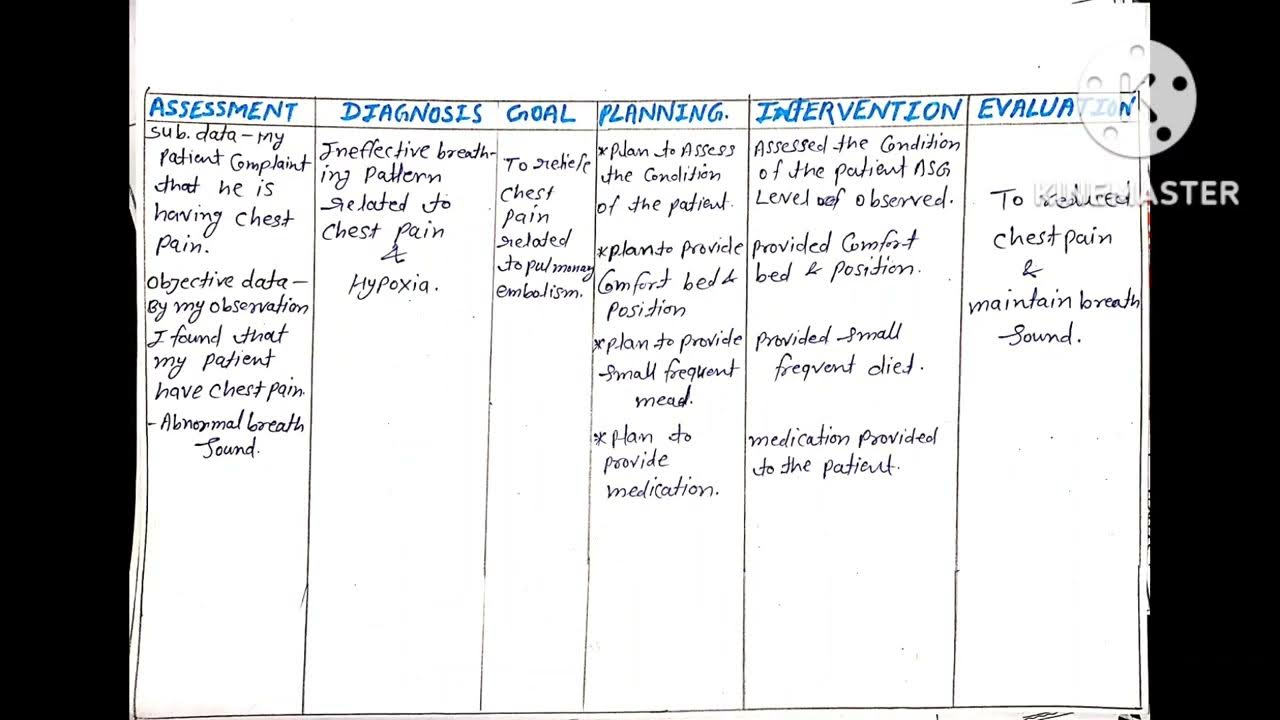 KINEMASTER
ASSESSMENT
Sub. data - my
patient Complaint
that he is
having chest
pain.
Objective data -
By my observation
I found that
my patient
have chest pain.
- Abnormal breath
Sound.
DIAGNOSIS
Ineffective breath-
ing Pattern
related to
chest pain
&
Hypoxia.
GOAL
To reliefe
chest
pain
related
to pulmonary
embolism.
PLANNING.
*plan to Assess
the Condition
of the patient.
*plan to provide
Comfort bed &
Position
*plan to provide
small frequent
mead.
*plan to
provide
medication.
INTERVENTION
Assessed the Condition
of the patient ASG
Level of observed.
provided Comfort
bed & position.
provided small
frequent diet.
medication provided
to the patient.
EVALUATION
To reduced
chest pain
&
maintain breath
sound.